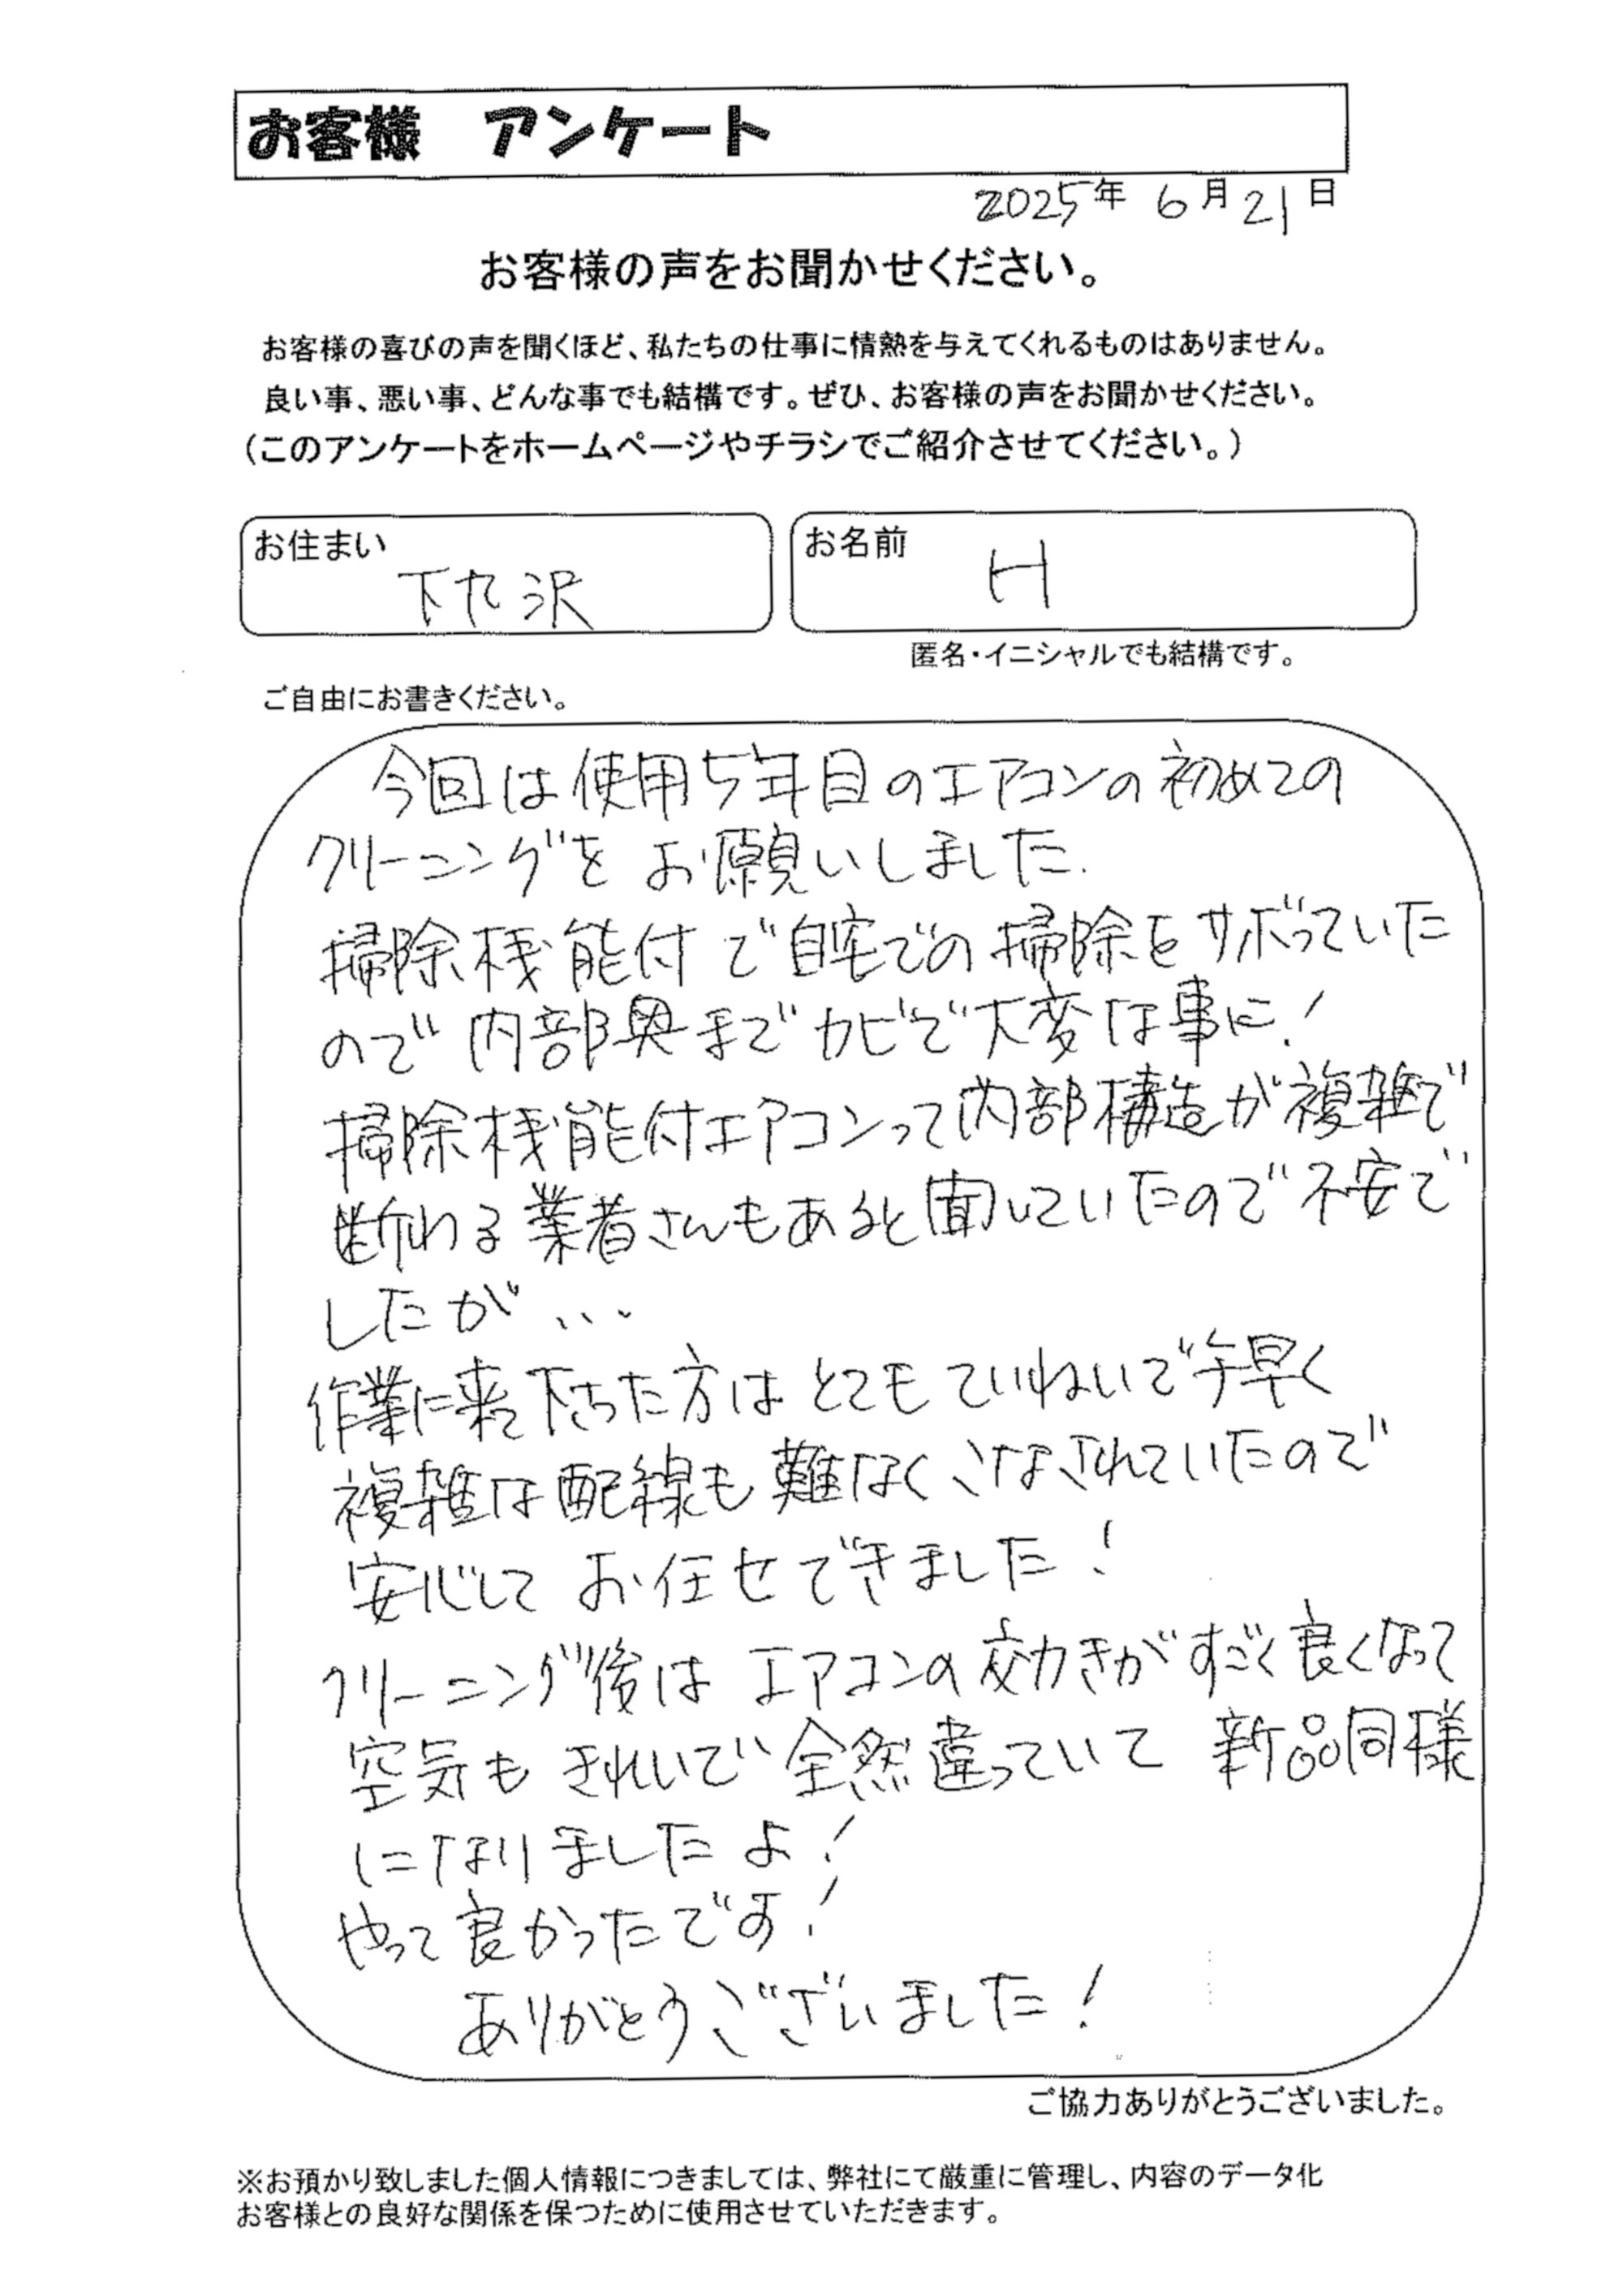 お客様 アンケート
2025年 6月21日
お客様の声をお聞かせください。
お客様の喜びの声を聞くほど、私たちの仕事に情熱を与えてくれるものはありません。
良い事、悪い事、どんな事でも結構です。ぜひ、お客様の声をお聞かせください。
（このアンケートをホームページやチラシでご紹介させてください。）
お住まい 下九沢
お名前 H
匿名・イニシャルでも結構です。
ご自由にお書きください。
今回は使用5年目のエアコンの初めての
クリーニングをお願いしました.
掃除機能付で自宅での掃除をサボっていた
ので内部奥までカビで大変な事に!
掃除機能付エアコンって内部構造が複雑で
断わる業者さんもあると聞いていたので不安で
したが...
作業に来て下さった方はとてもていねいで手早く
複雑な配線も難なくこなされていたので
安心してお任せできました!
クリーニング後はエアコンの効きがすごく良くなって
空気もきれいで全然違っていて 新品同様
になりましたよ!
やって良かったです!
ありがとうございました!
ご協力ありがとうございました。
※お預かり致しました個人情報につきましては、弊社にて厳重に管理し、内容のデータ化
お客様との良好な関係を保つために使用させていただきます。